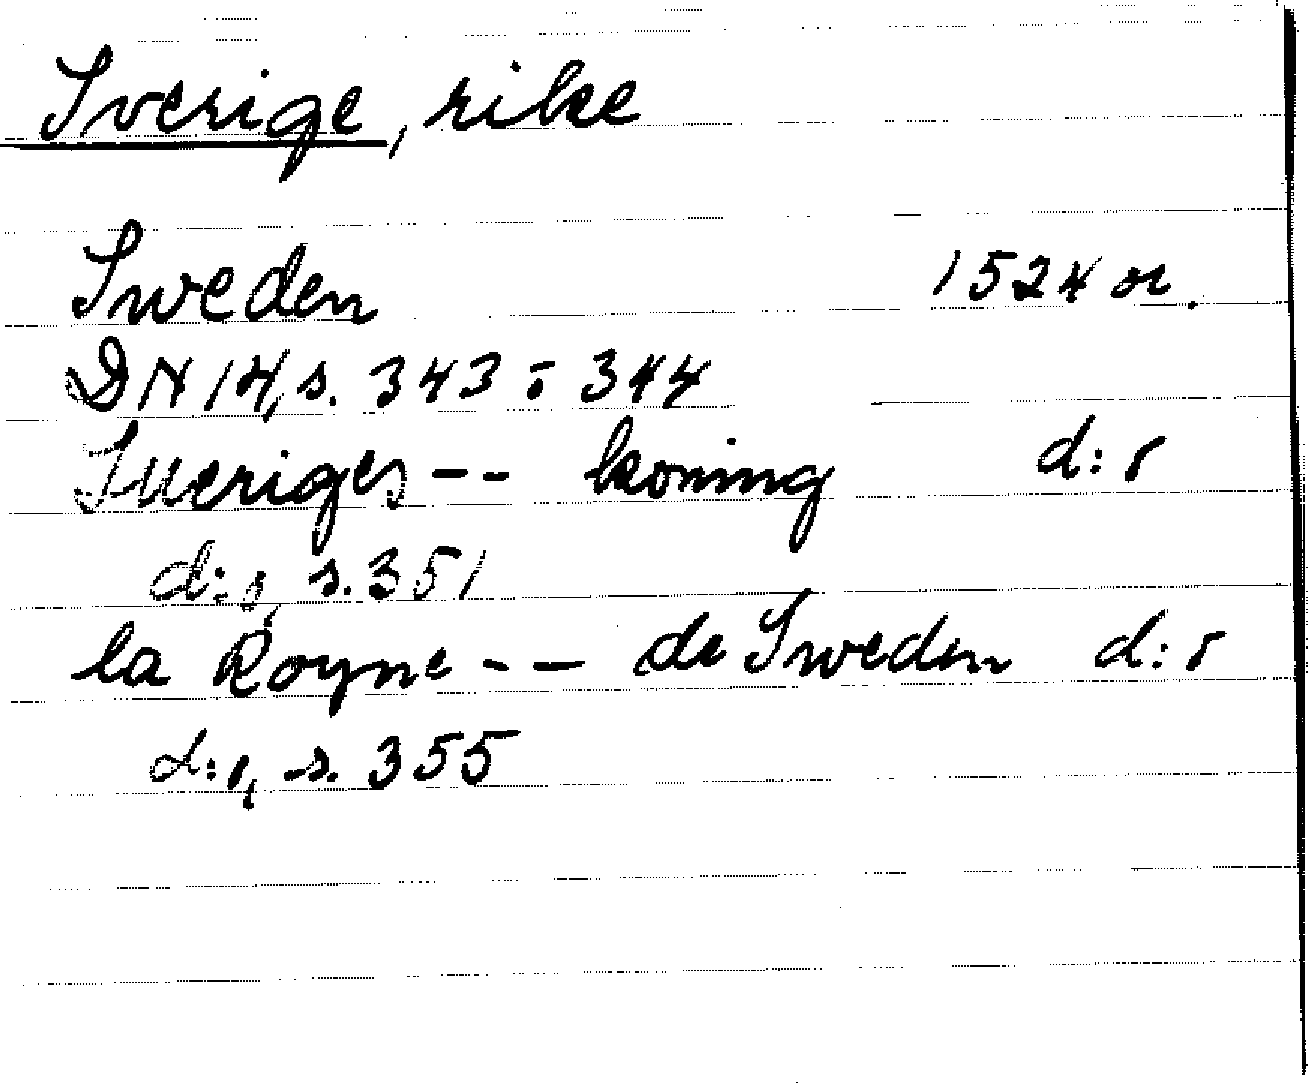 Sverige, rike
Sweden 1524 or.
DN 14, s. 343 o 344
Sueriges -- koning d:o
d:o, s. 351
la Royne -- de Sweden d:o
d:o, s. 355